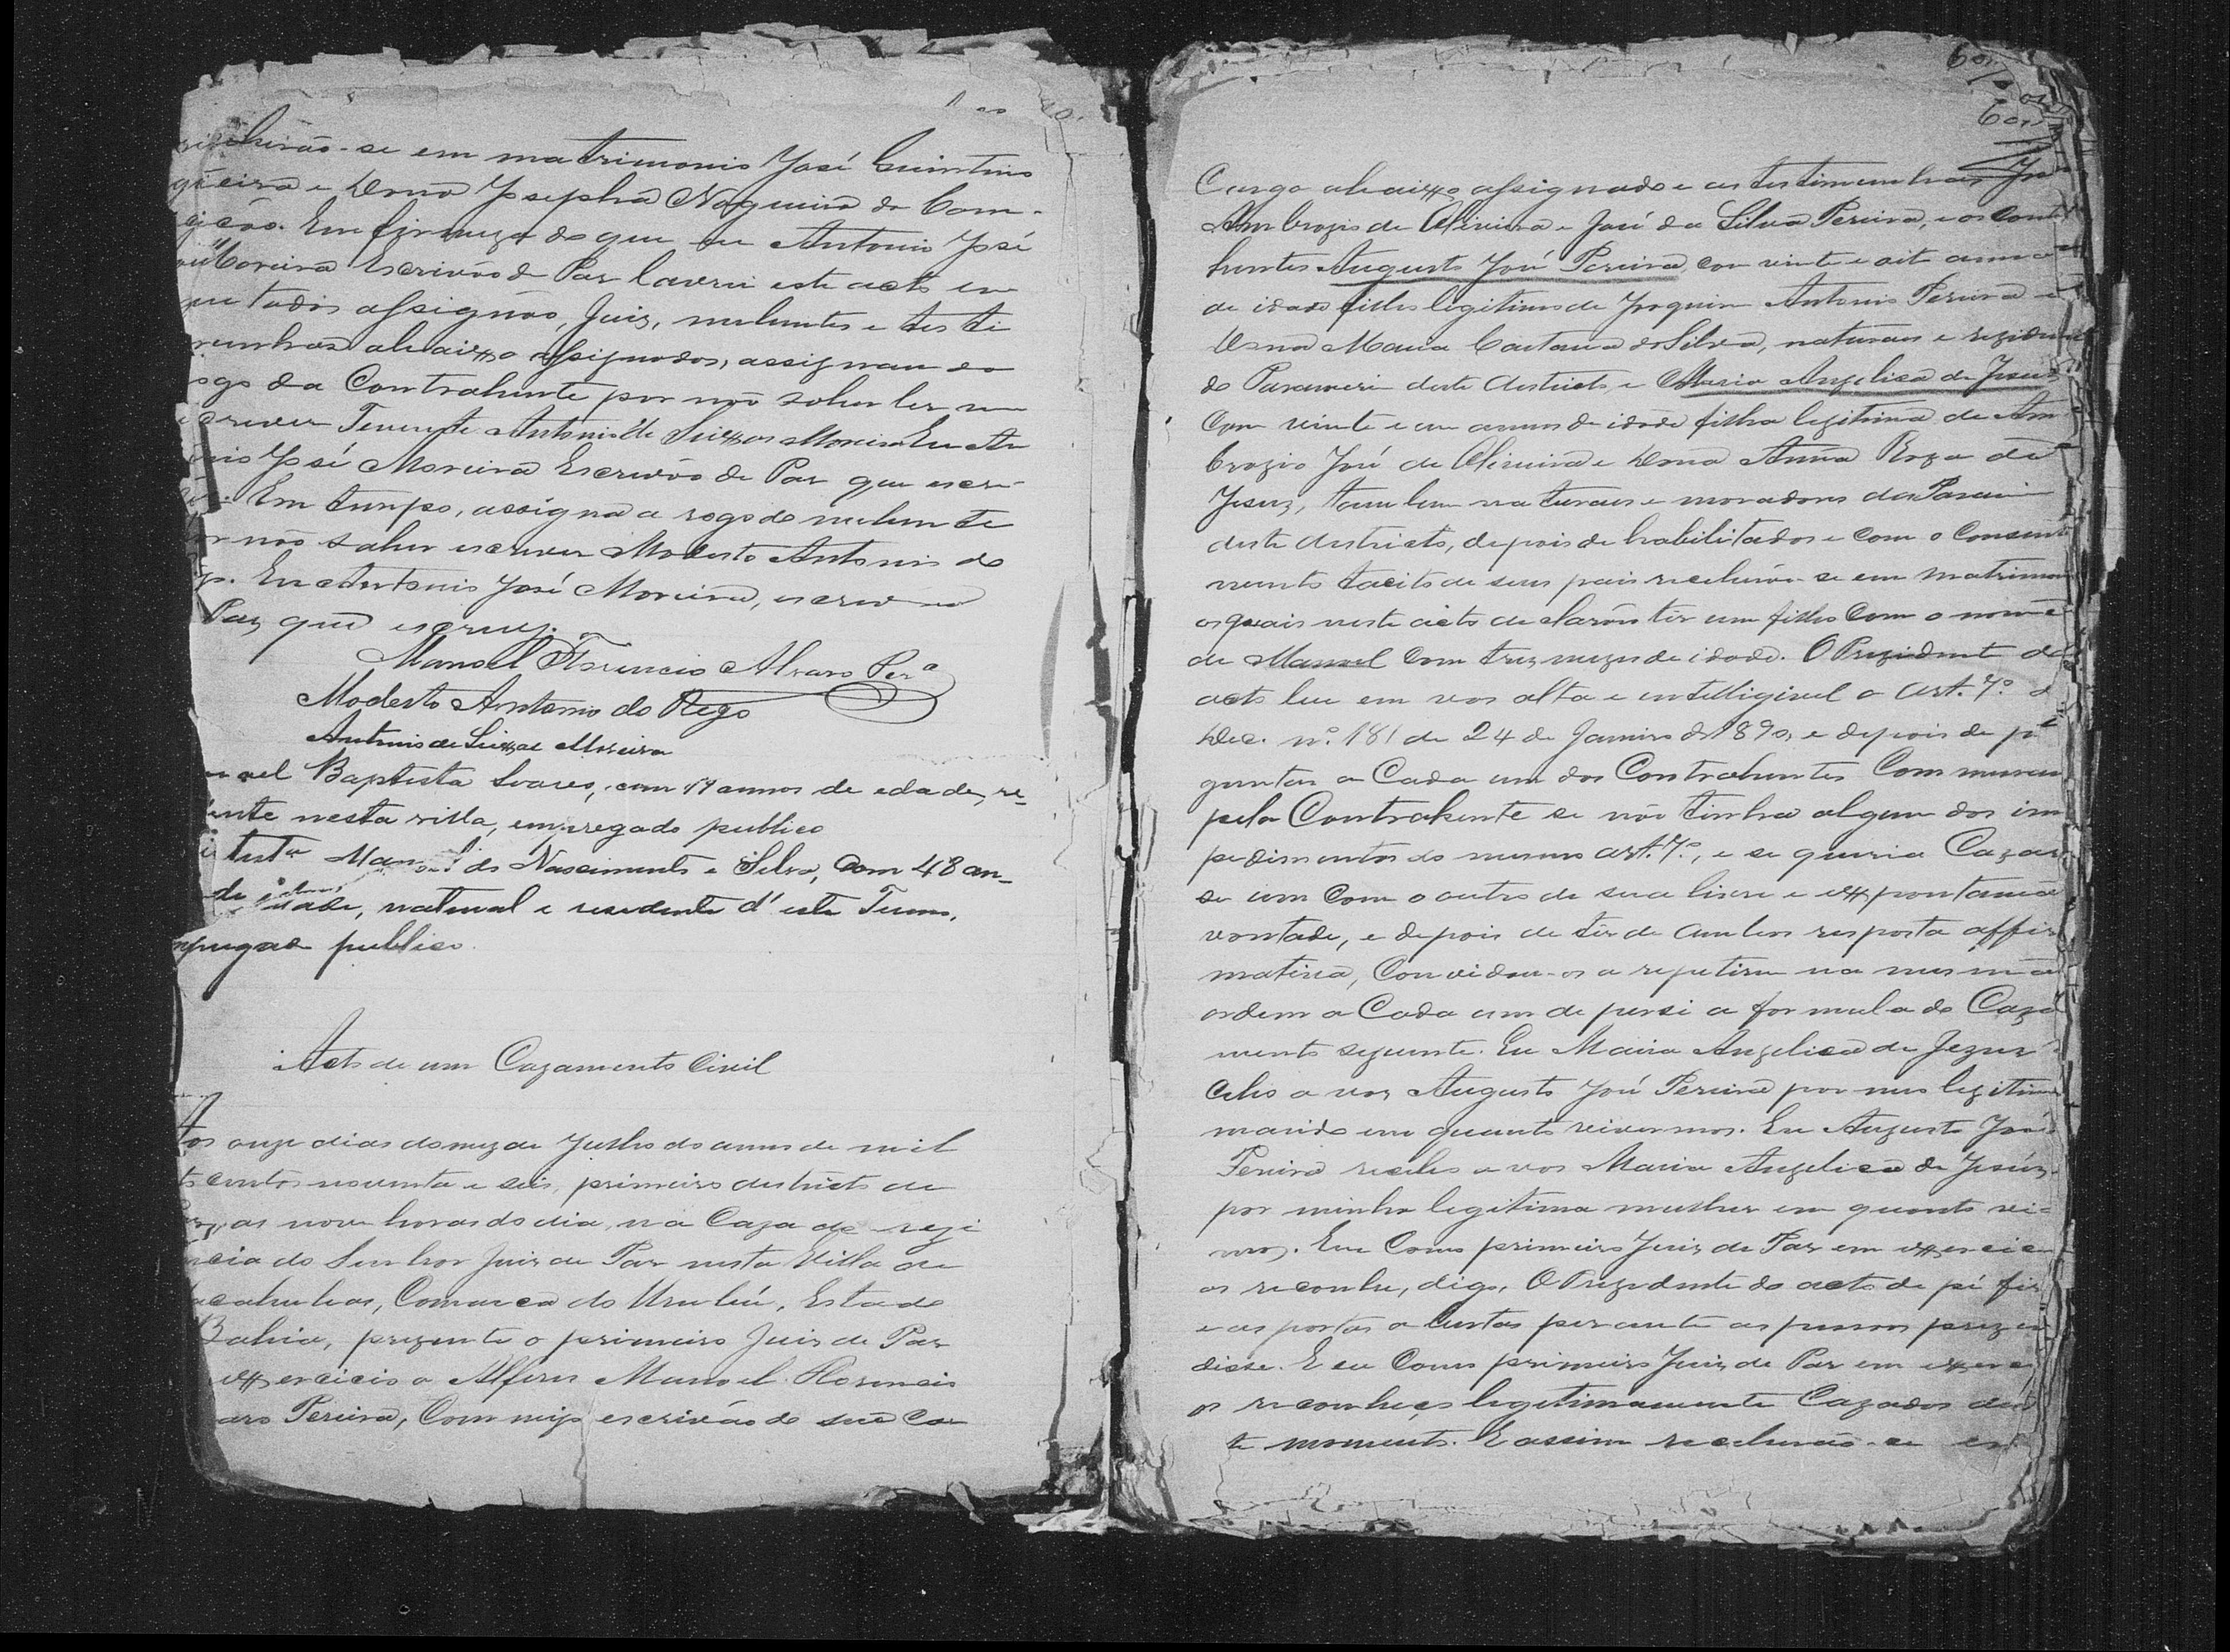 se em matrimonio José Quintino
e Dona Josepha Nogueira da Con-
ção. Em firmeza do que eu Antonio José
Moreira Escrivão de Paz lavrei este acto em
que todos assignão, Juiz, nubentes e testi
munhas abaixo assignados, assignando
rogo da Contrahente por não saber ler nem
escrever Tenente Antonio de Moreira Eu An
tonio José Moreira Escrivão de Paz que escre-
vi. Em tempo, assigna a rogo do nubente
por não saber escrever Modesto Antonio do
Rego. Eu Antonio José Moreira, escrivão
Paz que escrevy.
Manoel Florencio Alvaro Perª
Modesto Antonio do Rego
Antonio de Moreira
Baptista Soares, com annos de edade, re-
dente nesta villa, empregado publico
testª Manoel do Nascimento e Silva, com 48 an-
de idade, natural e residente d'este Termo,
empregado publico.
Acto de um Cazamento Civil
Aos onze dias do mez de Julho do anno de mil
centos noventa e seis, primeiro districto de
as nove horas do dia, na Caza de rezi
ncia do Senhor Juiz de Paz nesta Villa de
Macahubas, Comarca do Urubú, Estado
Bahia, prezente o primeiro Juiz de Paz
exercicio o Alferes Manoel Florencio
aro Pereira, Commigo escrivão de seu Car
60
60
Cargo abaixo assignado e as testimunhas
Ambrozio de Oliveira e José da Silva Pereira, e os Contra
hentes Augusto José Pereira, com vinte e oito annos
de idade filho legitimo de Joaquim Antonio Pereira e
Dona Maria Caetana da Silva, naturaes e rezidentes
do Paramerim deste districto, e Maria Angelica de Jesus
Com vinte e um annos de idade filha legitima de Am
brozio José de Oliveira e Dona Anna Roza de
Jesuz, tambem naturaes e moradores do
deste districto, depois de habilitados e com o Consenti
mento tacito de seus pais receberão-se em matrimon
os quais neste acto declarão ter um filho Com o nome
de Manoel Com trez mezes de idade. O Prezidente do
acto leu em vos alta e intelligivel o art. 7º d
Dec. nº 181 de 24 de Janeiro de 1890, e depois de per
guntar a Cada um dos Contrahentes Commeçan
pela Contrahente se não tinha algum dos im
pedimentos do mesmo art. 7º, e se queria Cazar
se um Com o outro de sua livre e expontanea
vontade, e depois de ter de ambos resposta affir
mativa, Convidou-os a repetirem na mesma
ordem a Cada um de persi a formula do Caza
mento seguinte. Eu Maria Angelica de Jezus
recebo a vos Augusto José Pereira por meu legitimo
marido em quanto vivermos. Eu Augusto José
Pereira recebo a vos Maria Angelica de Jesús
por minha legitima mulher em quanto vi-
mos. Eu Como primeiro Juiz de Paz em exercicio
os reconhe, digo, O Prezidente do acto de pé
e as portas abertas perante as pessoas prezen
disse. E eu Como primeiro Juiz de Paz em exerc
os reconheço legitimamente Cazados des
te momento. E assim receberão-se em